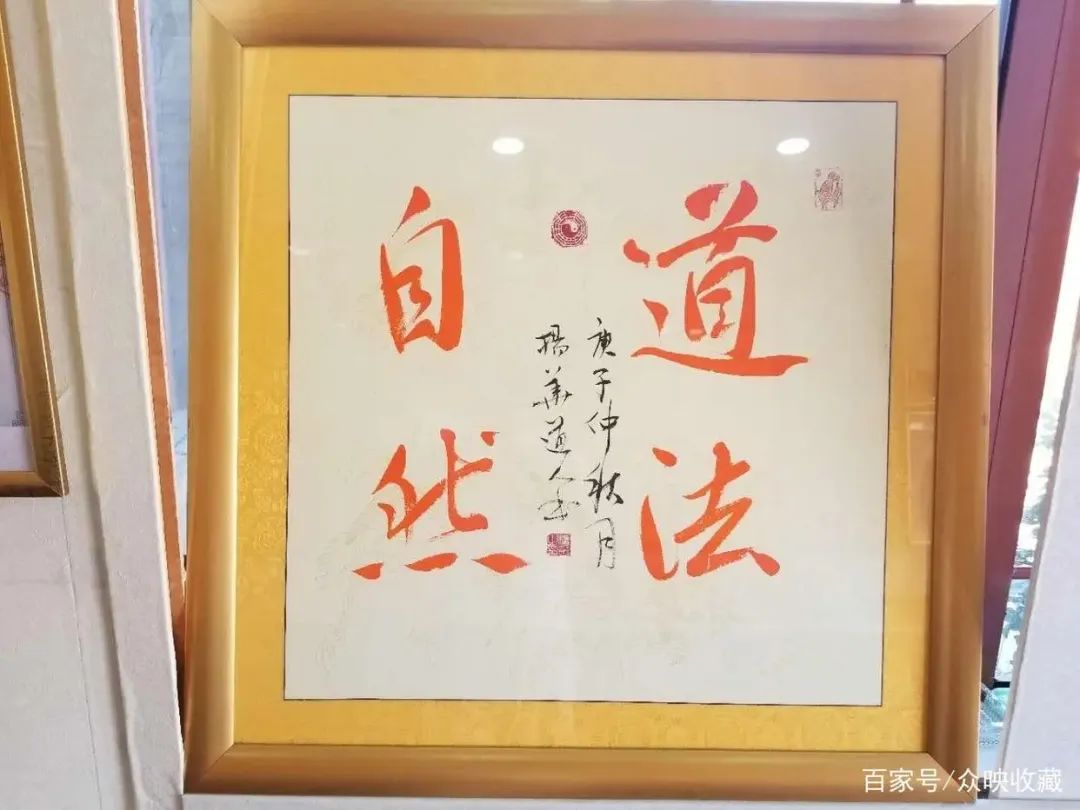 道法
自然
庚子仲秋月
杨华道人书
百家号/众映收藏